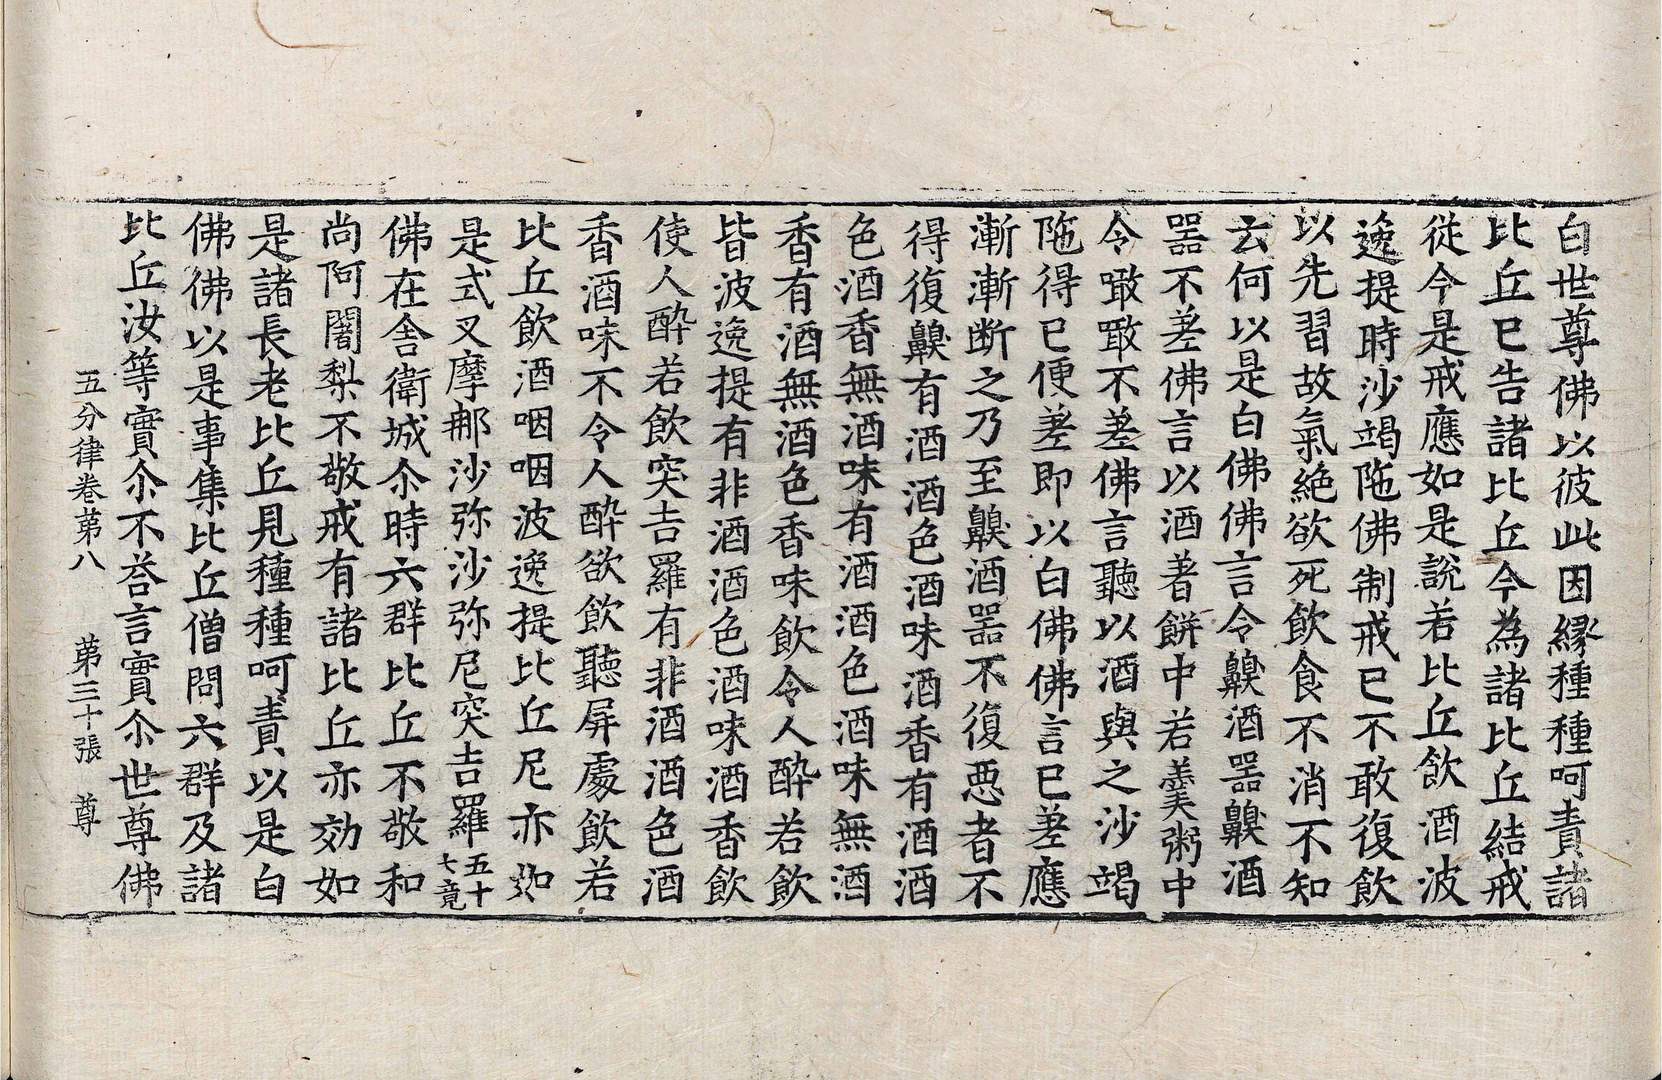 白世尊佛以彼此因緣種種呵責諸
比丘已告諸比丘今為諸比丘結戒
從今是戒應如是說若比丘飲酒波
逸提時沙竭陁佛制戒已不敢復飲
以先習故氣絶欲死飲食不消不知
云何以是白佛佛言令齅酒噐齅酒
噐不差佛言以酒著餅中若羹粥中
令噉噉不差佛言聽以酒與之沙竭
陁得已便差即以白佛佛言已差應
漸漸断之乃至齅酒噐不復惡者不
得復齅有酒酒色酒味酒香有酒酒
色酒香無酒味有酒酒色酒味無酒
香有酒無酒色香味飲令人醉若飲
皆波逸提有非酒酒色酒味酒香飲
使人醉若飲突吉羅有非酒酒色酒
香酒味不令人醉欲飲聽屏處飲若
比丘飲酒咽咽波逸提比丘尼亦如
是式叉摩那沙弥沙弥尼突吉羅五十七竟
佛在舍衛城尒時六群比丘不敬和
尚阿闍梨不敬戒有諸比丘亦効如
是諸長老比丘見種種呵責以是白
佛佛以是事集比丘僧問六群及諸
比丘汝等實尒不荅言實尒世尊佛
五分律卷第八 第三十張 尊